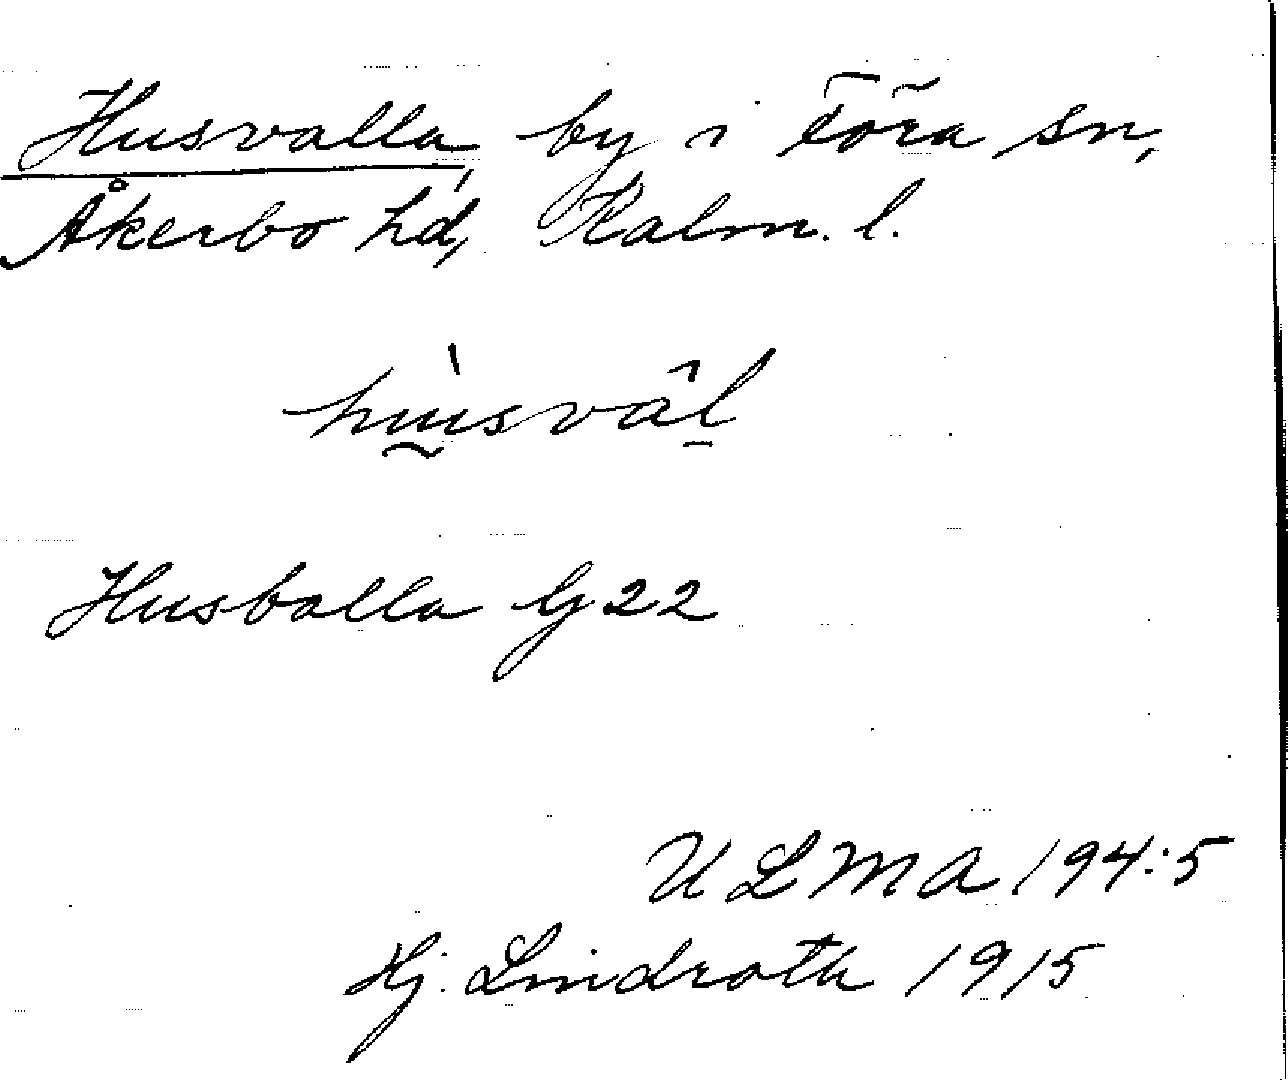 Husvalla, by i Föra sn,
Åkerbo hd, Kalm. l.
hùsvàl
Husballa G 22
ULMA 194:5
Hj. Lindroth 1915